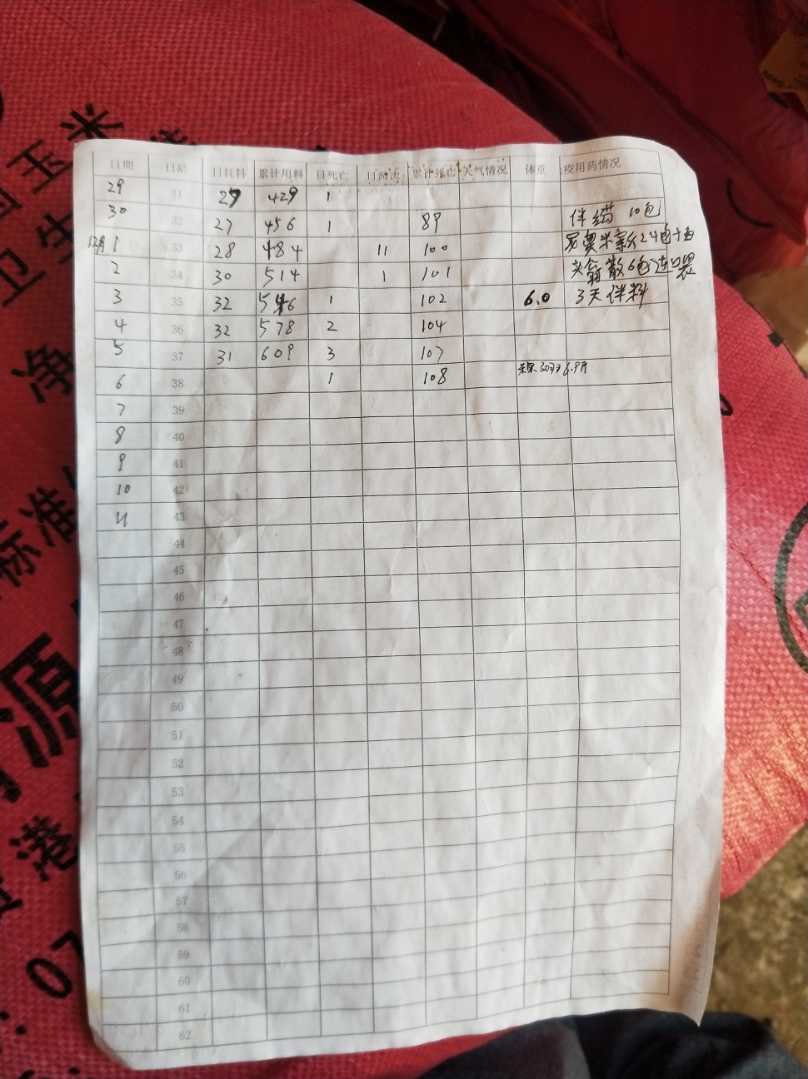 玉米
卫生
净
标准
源
港
07
日期 日龄 日耗料 累计用料 日死亡 日淘汰 累计死亡 天气情况 体重 疫用药情况
29 31 27 429 1
30 32 27 456 1 89 伴 10包
12月1 33 28 484 11 100
2 34 30 514 1 101
3 35 32 546 1 102 6.0 3天伴料
4 36 32 578 2 104
5 37 31 609 3 107
6 38 1 108
7 39
8 40
9 41
10 42
11 43
44
45
46
47
48
49
50
51
52
53
54
55
56
57
58
59
60
61
62